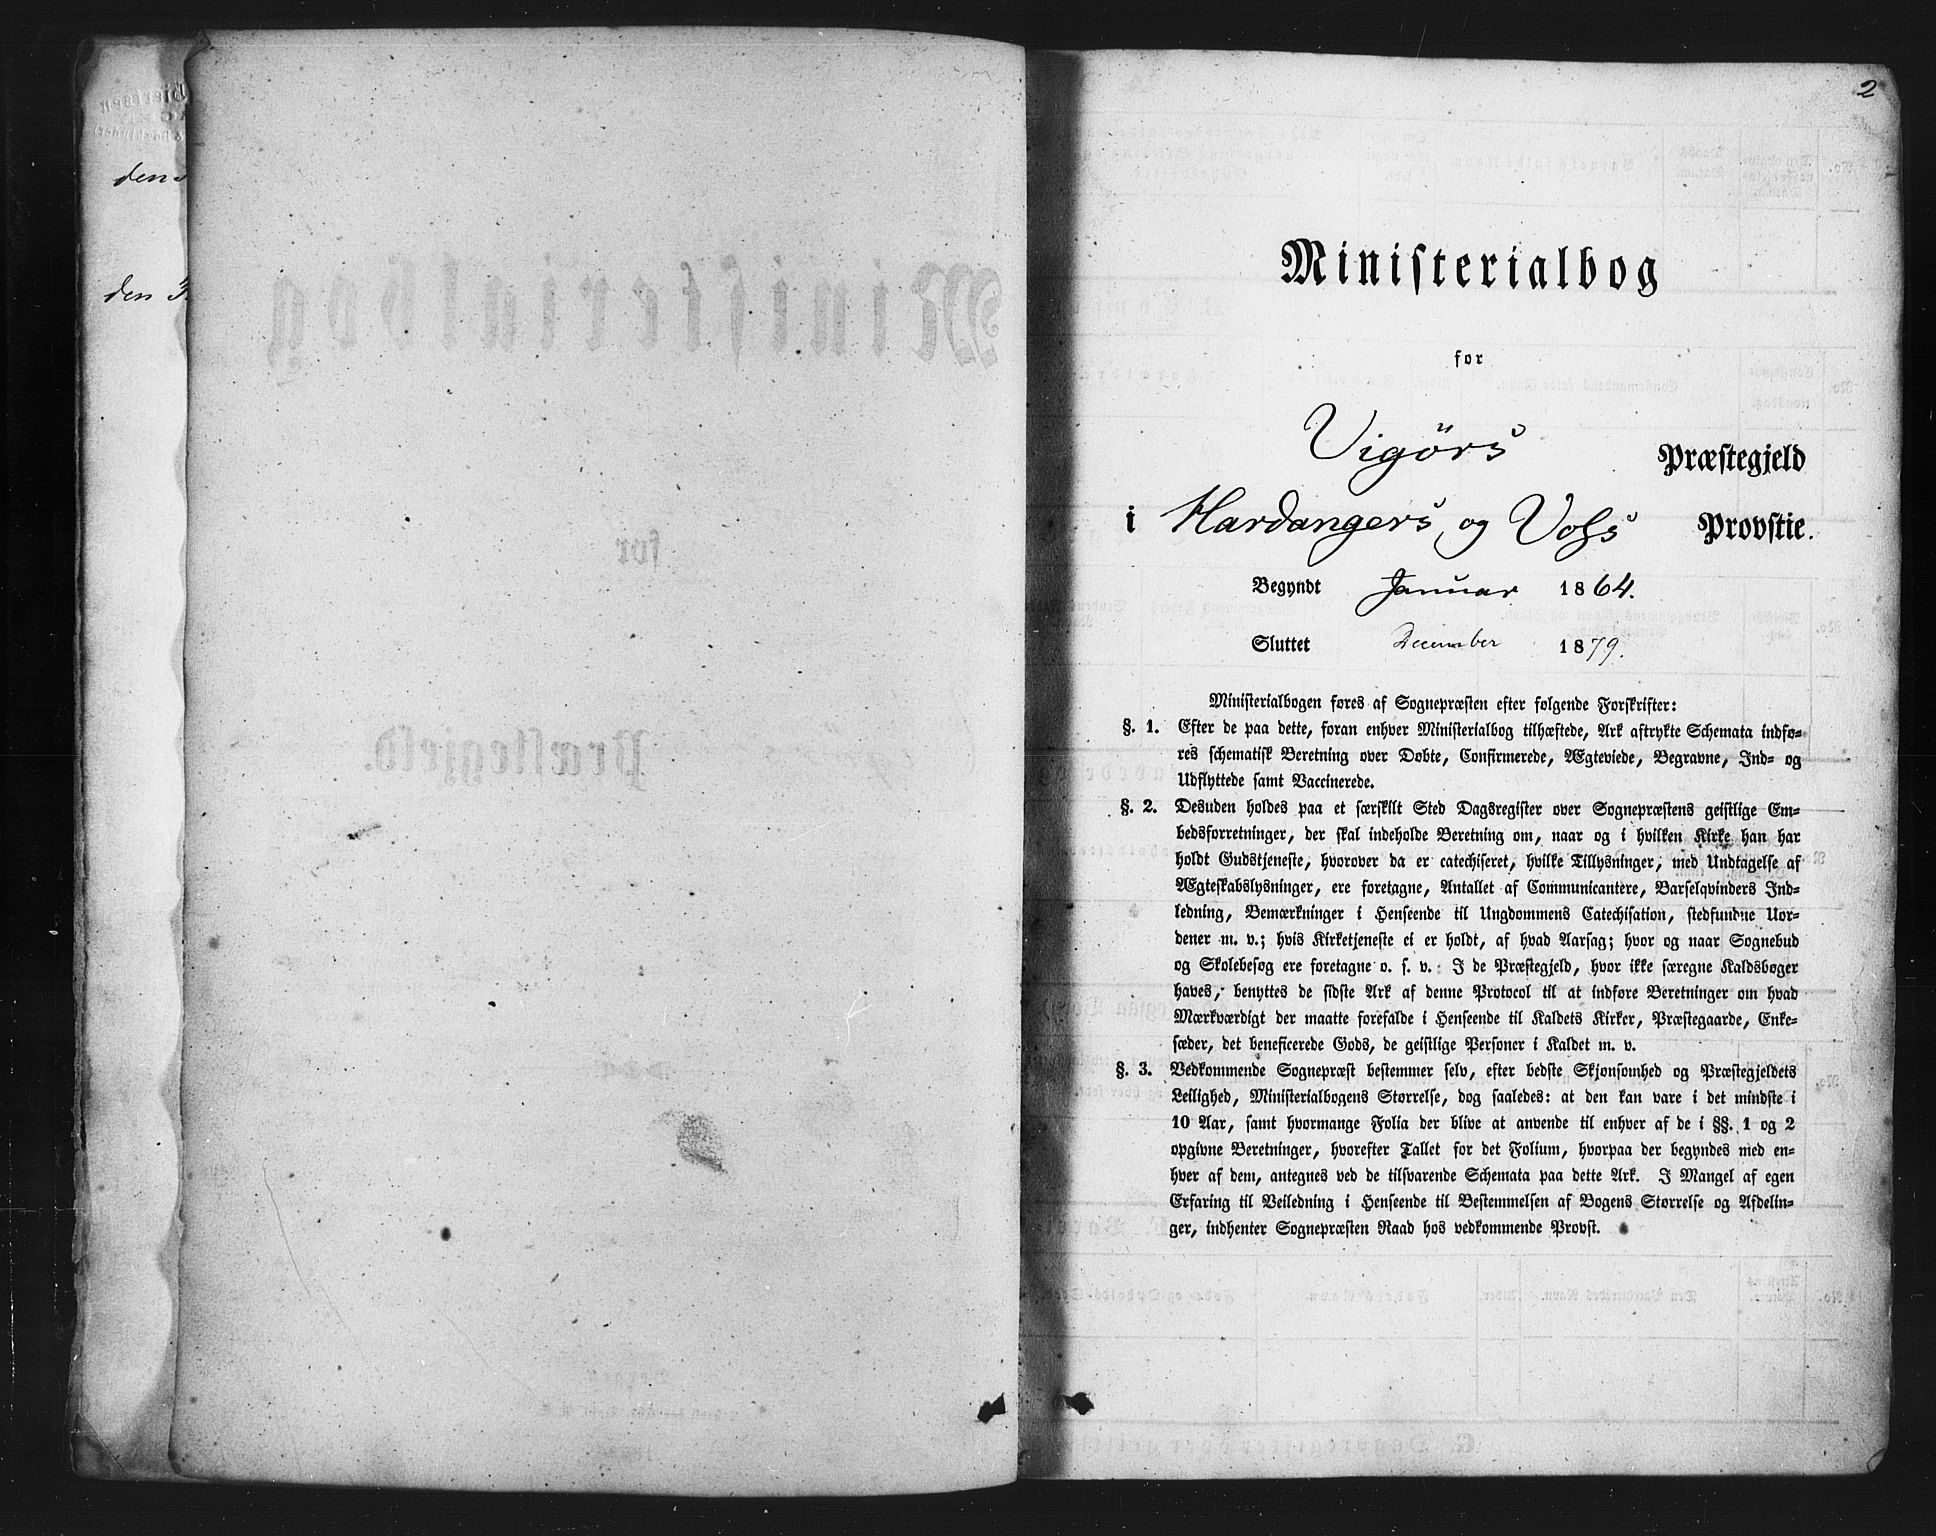 2
den
den
Ministerialbog
for
Vigørs Præstegjeld
i Hardangers og Voss Provstie.
Begyndt Januar 1864.
Sluttet December 1879.
Ministerialbogen føres af Sognepræsten efter følgende Forskrifter:
§. 1. Efter de paa dette, foran enhver Ministerialbog tilhæftede, Ark aftrykte Schemata indfø-
res schematisk Beretning over Døbte, Confirmerede, Ægteviede, Begravne, Ind- og
Udflyttede samt Vaccinerede.
§. 2. Desuden holdes paa et særskilt Sted Dagsregister over Sognepræstens geistlige Em-
bedsforretninger, der skal indeholde Beretning om, naar og i hvilken Kirke han har
holdt Gudstjeneste, hvorover da er catechiseret, hvilke Tillysninger, med Undtagelse af
Ægteskabslysninger, ere foretagne, Antallet af Communicantere, Barselqvinders Ind-
ledning, Bemærkninger i Henseende til Ungdommens Catechisation, stedfundne Uor-
dener m. v.; hvis Kirketjeneste ei er holdt, af hvad Aarsag; hvor og naar Sognebud
og Skolebesøg ere foretagne o. s. v. I de Præstegjeld, hvor ikke særegne Kaldsbøger
haves, benyttes de sidste Ark af denne Protocol til at indføre Beretninger om hvad
Mærkværdigt der maatte forefalde i Henseende til Kaldets Kirker, Præstegaarde, Enke-
sæder, det beneficerede Gods, de geistlige Personer i Kaldet m. v.
§. 3. Vedkommende Sognepræst bestemmer selv, efter bedste Skjønsomhed og Præstegjeldets
Leilighed, Ministerialbogens Størrelse, dog saaledes: at den kan vare i det mindste i
10 Aar, samt hvormange Folia der blive at anvende til enhver af de i §§. 1 og 2
opgivne Beretninger, hvorefter Tallet for det Folium, hvorpaa der begyndes med en-
hver af dem, antegnes ved de tilsvarende Schemata paa dette Ark. I Mangel af egen
Erfaring til Veiledning i Henseende til Bestemmelsen af Bogens Størrelse og Afdelin-
ger, indhenter Sognepræsten Raad hos vedkommende Provst.